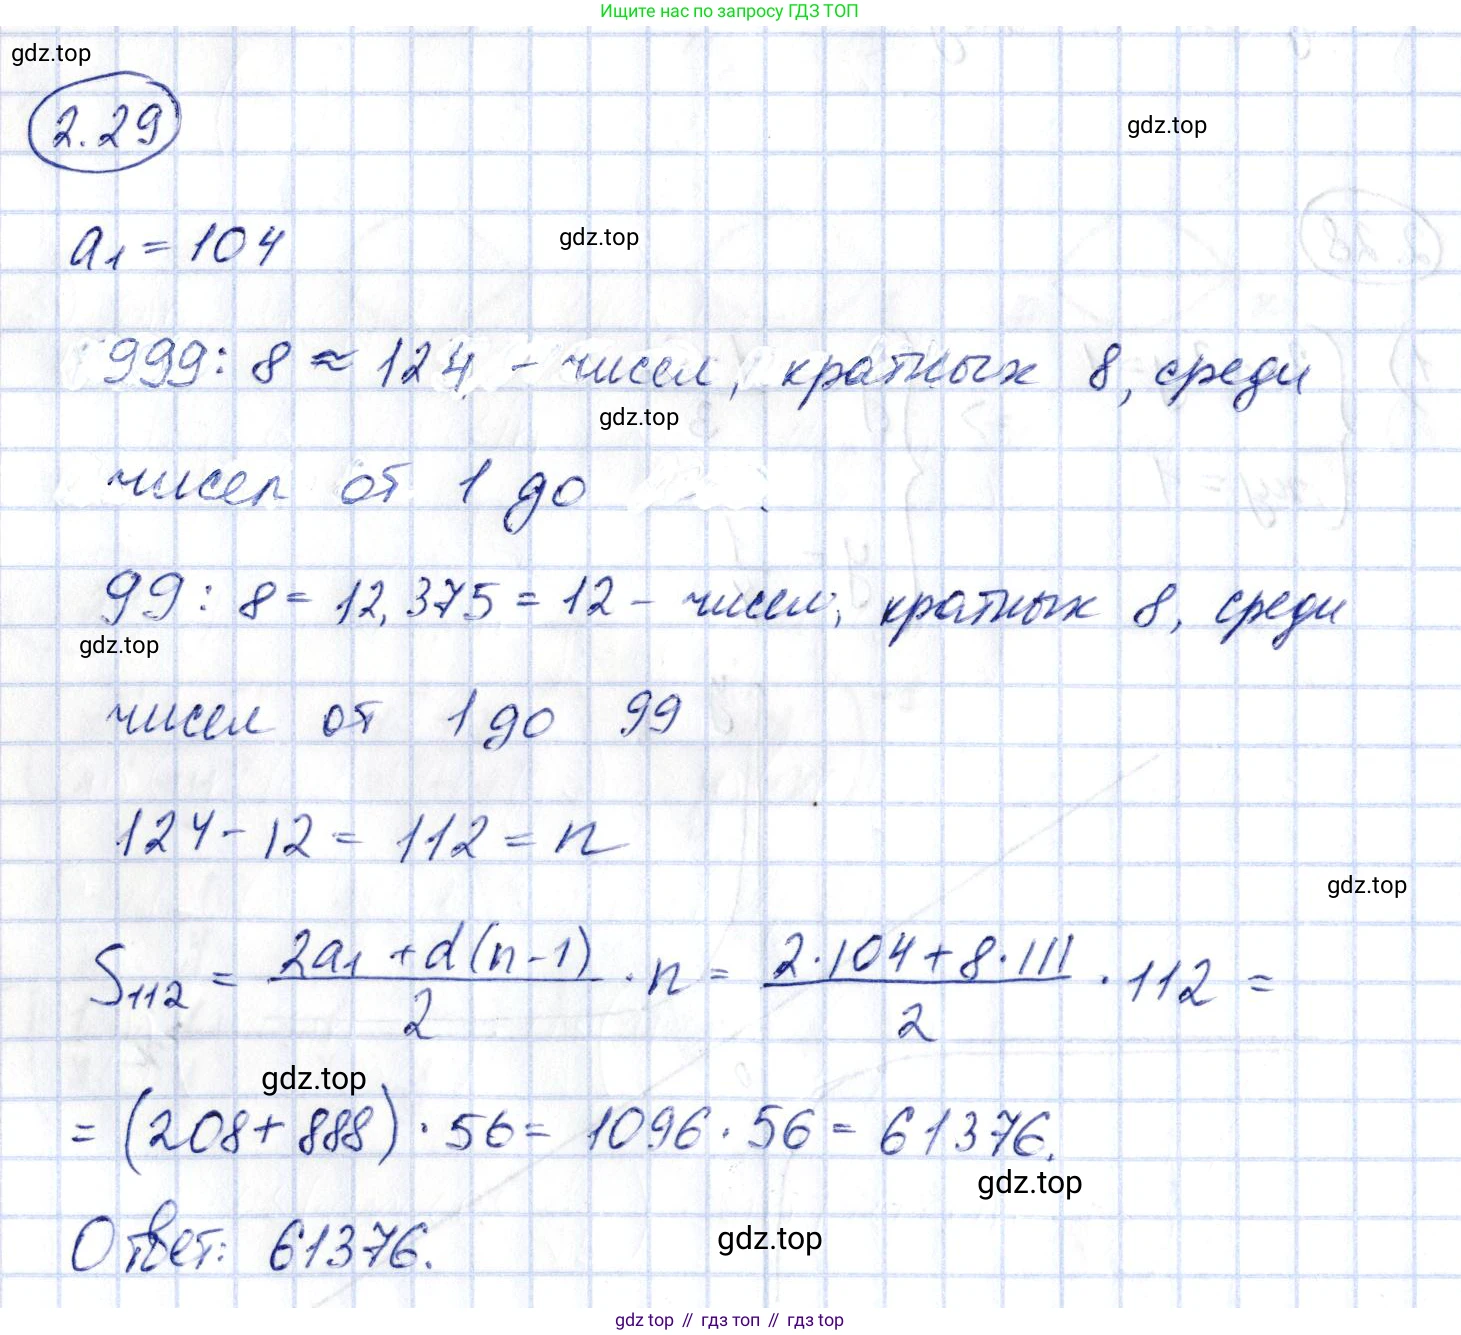 Ищите нас по запросу ГДЗ ТОП
gdz.top
2.29
gdz.top
a₁ = 104
gdz.top
999 : 8 ≈ 124 - чисел, кратных 8, среди
gdz.top
чисел от 1 до .
99 : 8 = 12,375 = 12 - чисел, кратных 8, среди
gdz.top
чисел от 1 до 99
124 - 12 = 112 = n
gdz.top
S₁₁₂ = (2a₁ + d(n-1))/2 · n = (2·104 + 8·111)/2 · 112 =
gdz.top
= (208 + 888) · 56 = 1096 · 56 = 61376.
gdz.top
Ответ: 61376.
gdz.top
gdz top // гдз топ // гдз top